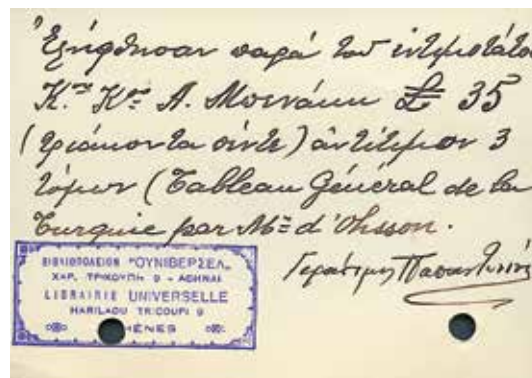 Ἐλήφθησαν παρὰ τοῦ ἐντιμοτάτου
Κ.ου Κου Α. Μπενάκη £ 35
(τριάκοντα πέντε) ἀντίτιμον 3
τόμων (Tableau Général de la
Turquie par Mr d'Ohsson.
ΒΙΒΛΙΟΠΩΛΕΙΟΝ "ΟΥΝΙΒΕΡΣΕΛ"
ΧΑΡ. ΤΡΙΚΟΥΠΗ 9 - ΑΘΗΝΑΙ
LIBRAIRIE UNIVERSELLE
HARILAOU TRICOUPI 9
HÈNES